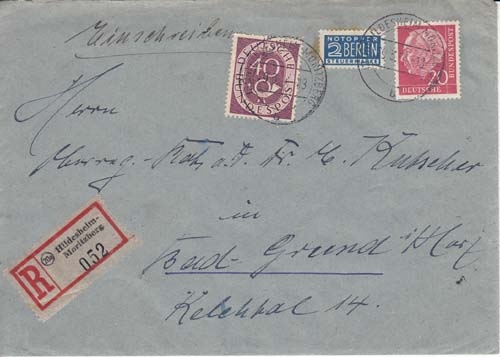 Einschreiben
DEUTSCHE
40
BUNDESPOST
NOTOPFER
2 BERLIN
STEUERMARKE
20
DEUTSCHE
BUNDESPOST
Herrn
Rat a. D. Dr. C. Kutscher
in
Bad-Grund i/Harz
Kelchtal 14.
R
20a
Hildesheim-
Moritzberg
052